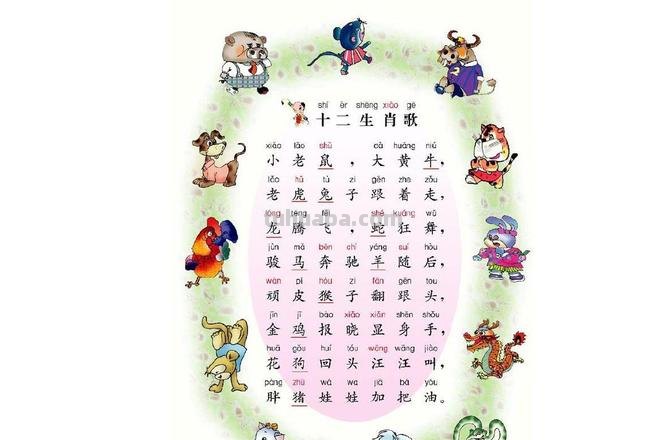 shí èr shēng xiào gē
十二生肖歌
xiǎo lǎo shǔ dà huáng niú
小老鼠,大黄牛,
lǎo hǔ tù zi gēn zhe zǒu
老虎兔子跟着走,
lóng téng fēi shé kuáng wǔ
龙腾飞,蛇狂舞,
tuhuaba.com
jùn mǎ bēn chí yáng suí hòu
骏马奔驰羊随后,
wán pí hóu zi fān gēn tóu
顽皮猴子翻跟头,
jīn jī bào xiǎo xiǎn shēn shǒu
金鸡报晓显身手,
huā gǒu huí tóu wāng wāng jiào
花狗回头汪汪叫,
pàng zhū wá wa jiā bǎ yóu
胖猪娃娃加把油。